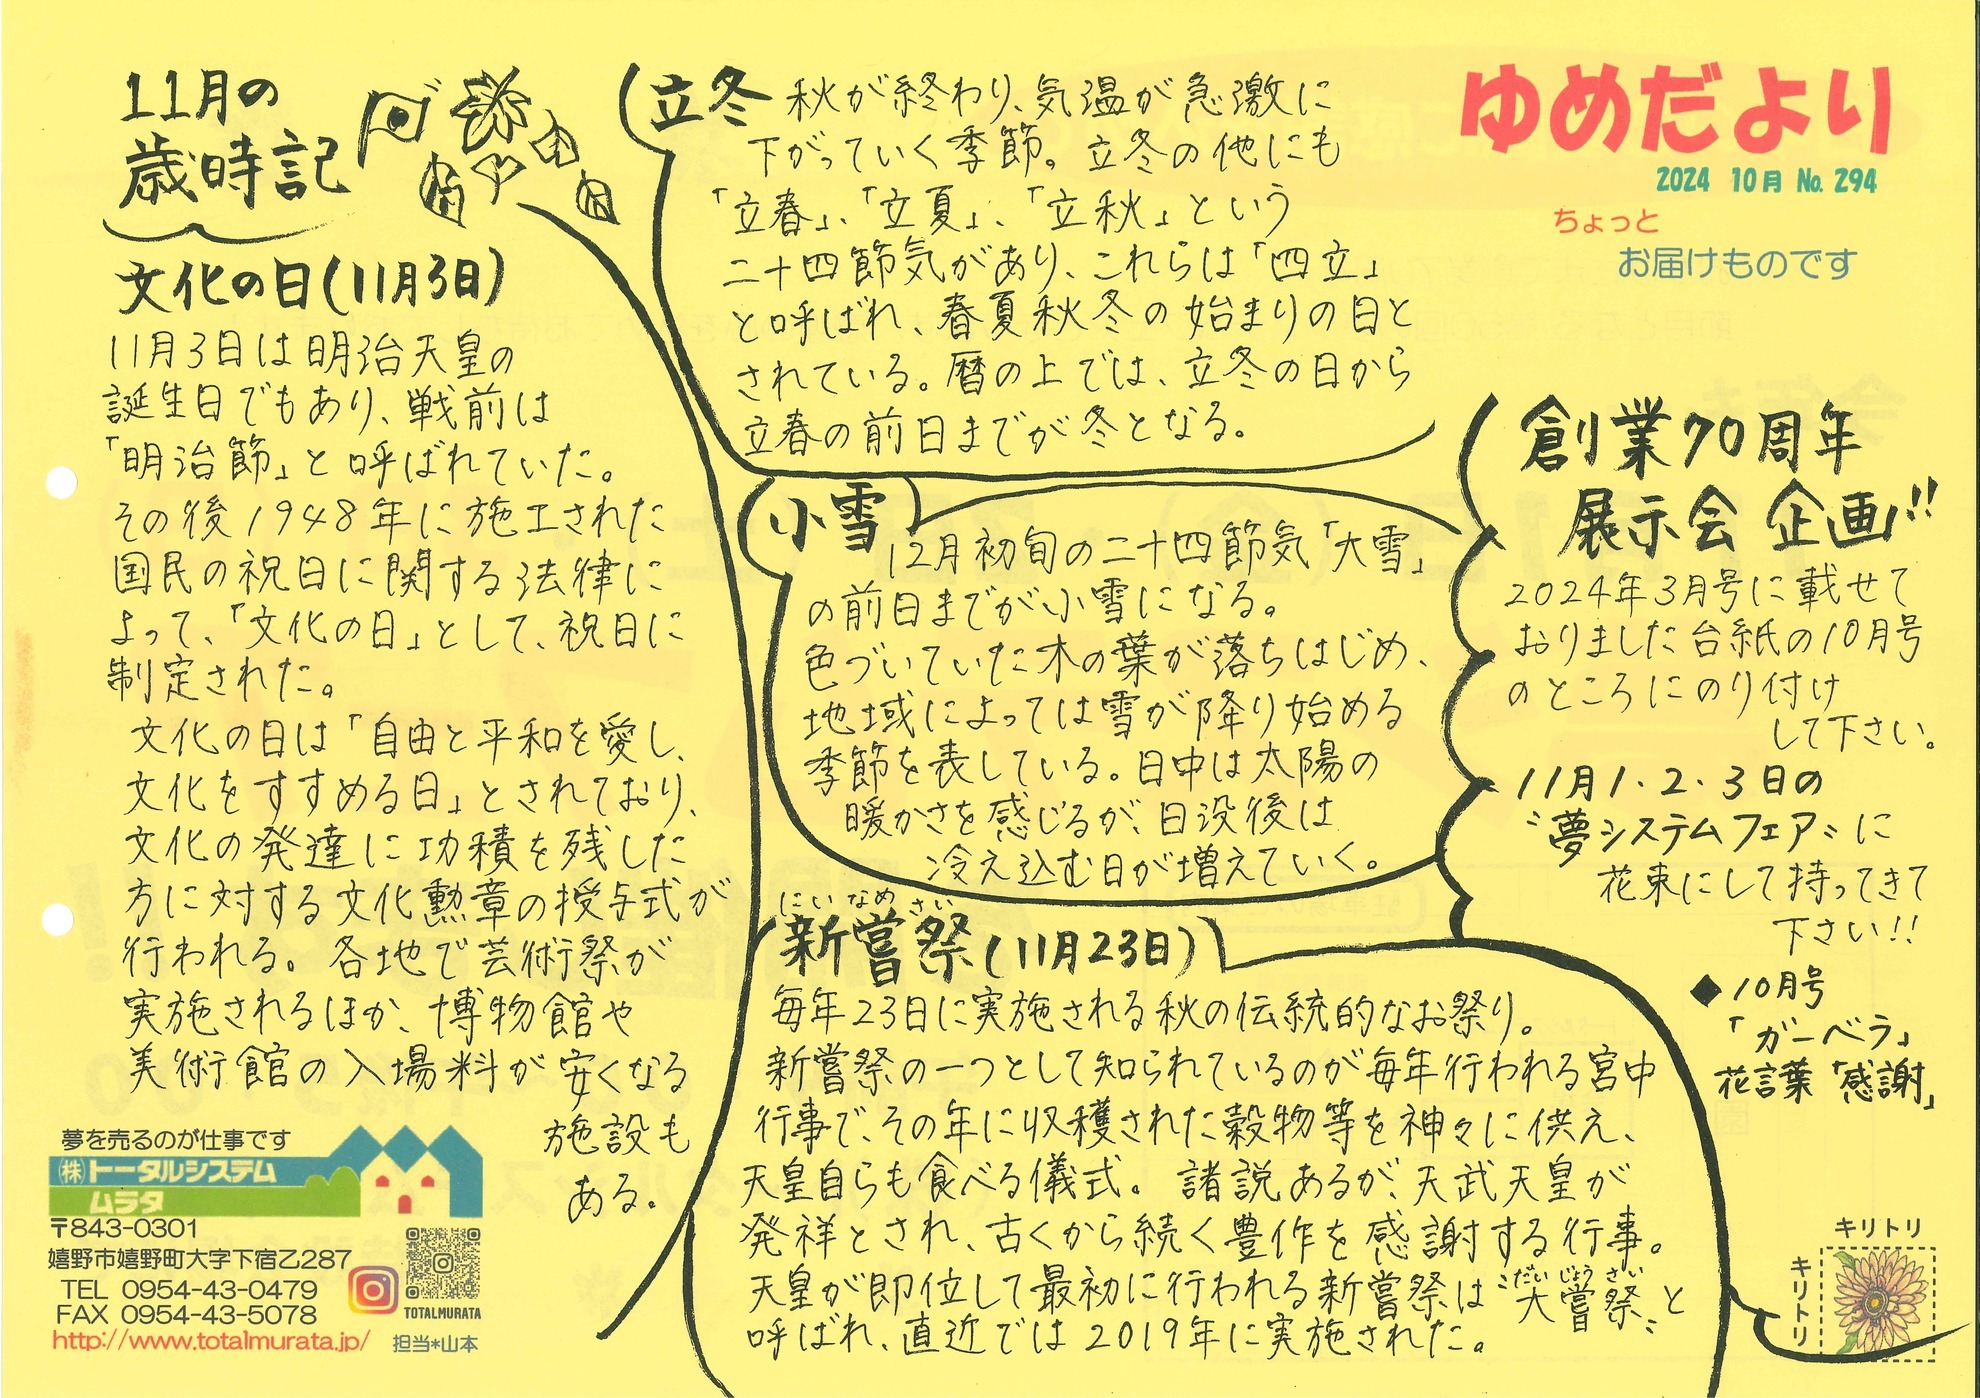 ゆめだより
2024 10月 No. 294
ちょっと
お届けものです
11月の
歳時記
文化の日(11月3日)
11月3日は明治天皇の
誕生日でもあり、戦前は
「明治節」と呼ばれていた。
その後1948年に施工された
国民の祝日に関する法律に
よって、「文化の日」として、祝日に
制定された。
文化の日は「自由と平和を愛し、
文化をすすめる日」とされており、
文化の発達に功積を残した
方に対する文化勲章の授与式が
行われる。各地で芸術祭が
実施されるほか、博物館や
美術館の入場料が安くなる
施設も
ある。
立冬 秋が終わり、気温が急激に
下がっていく季節。立冬の他にも
「立春」、「立夏」、「立秋」という
二十四節気があり、これらは「四立」
と呼ばれ、春夏秋冬の始まりの日と
されている。暦の上では、立冬の日から
立春の前日までが冬となる。
小雪
12月初旬の二十四節気「大雪」
の前日までが小雪になる。
色づいていた木の葉が落ちはじめ、
地域によっては雪が降り始める
季節を表している。日中は太陽の
暖かさを感じるが、日没後は
冷え込む日が増えていく。
にいなめさい
新嘗祭(11月23日)
毎年23日に実施される秋の伝統的なお祭り。
新嘗祭の一つとして知られているのが毎年行われる宮中
行事で、その年に収穫された穀物等を神々に供え、
天皇自らも食べる儀式。諸説あるが、天武天皇が
発祥とされ、古くから続く豊作を感謝する行事。
だいじょうさい
天皇が即位して最初に行われる新嘗祭は〝大嘗祭〟と
呼ばれ、直近では2019年に実施された。
創業70周年
展示会 企画!!
2024年3月号に載せて
おりました台紙の10月号
のところにのり付け
して下さい。
11月1・2・3日の
〝夢システムフェア〟に
花束にして持ってきて
下さい!!
◆10月号
「ガーベラ」
花言葉「感謝」
キリトリ
キリトリ
夢を売るのが仕事です
(株)トータルシステム
ムラタ
〒843-0301
嬉野市嬉野町大字下宿乙287
TEL 0954-43-0479
FAX 0954-43-5078
TOTALMURATA
http://www.totalmurata.jp/ 担当*山本